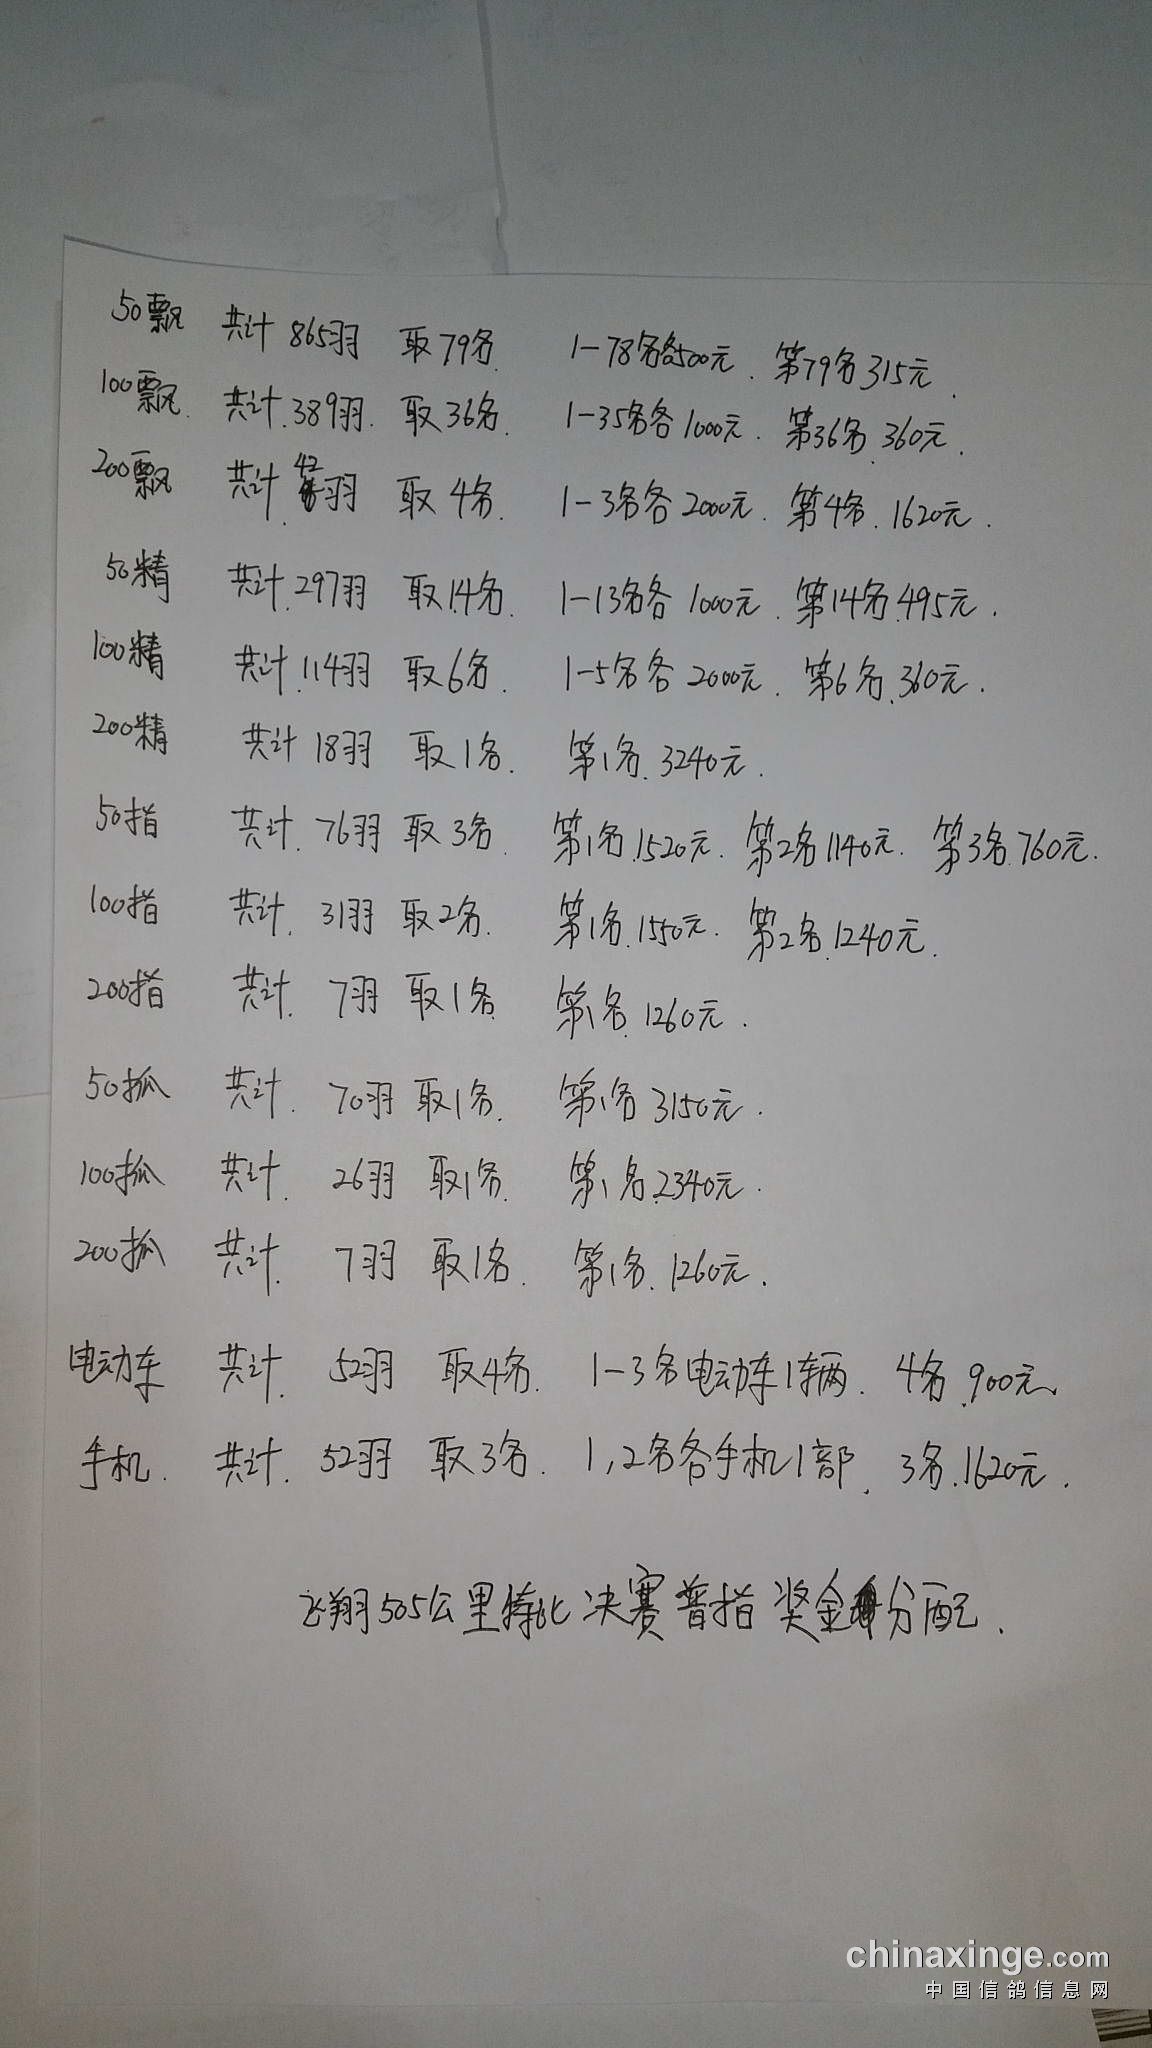 50飘 共计 865羽 取79名. 1-78名各500元. 第79名315元.
100飘. 共计.389羽. 取36名. 1-35名各1000元. 第36名.360元.
200飘 共计.42羽 取4名. 1-3名各2000元. 第4名.1620元.
50精 共计.297羽 取14名. 1-13名各1000元. 第14名.495元.
100精 共计.114羽 取6名. 1-5名各2000元. 第6名.360元.
200精 共计18羽 取1名. 第1名.3240元.
50指 共计.76羽 取3名. 第1名.1520元. 第2名1140元. 第3名.760元.
100指 共计.31羽 取2名. 第1名.1550元. 第2名.1240元.
200指 共计.7羽 取1名. 第1名.1260元.
50抓 共计.70羽 取1名. 第1名3150元.
100抓 共计.26羽 取1名. 第1名.2340元.
200抓 共计.7羽 取1名. 第1名.1260元.
电动车 共计.52羽 取4名. 1-3名电动车1辆. 4名.900元.
手机. 共计.52羽 取3名. 1,2名各手机1部. 3名.1620元.
飞翔505公里特比决赛普指奖金分配.
chinaxinge.com
中国信鸽信息网